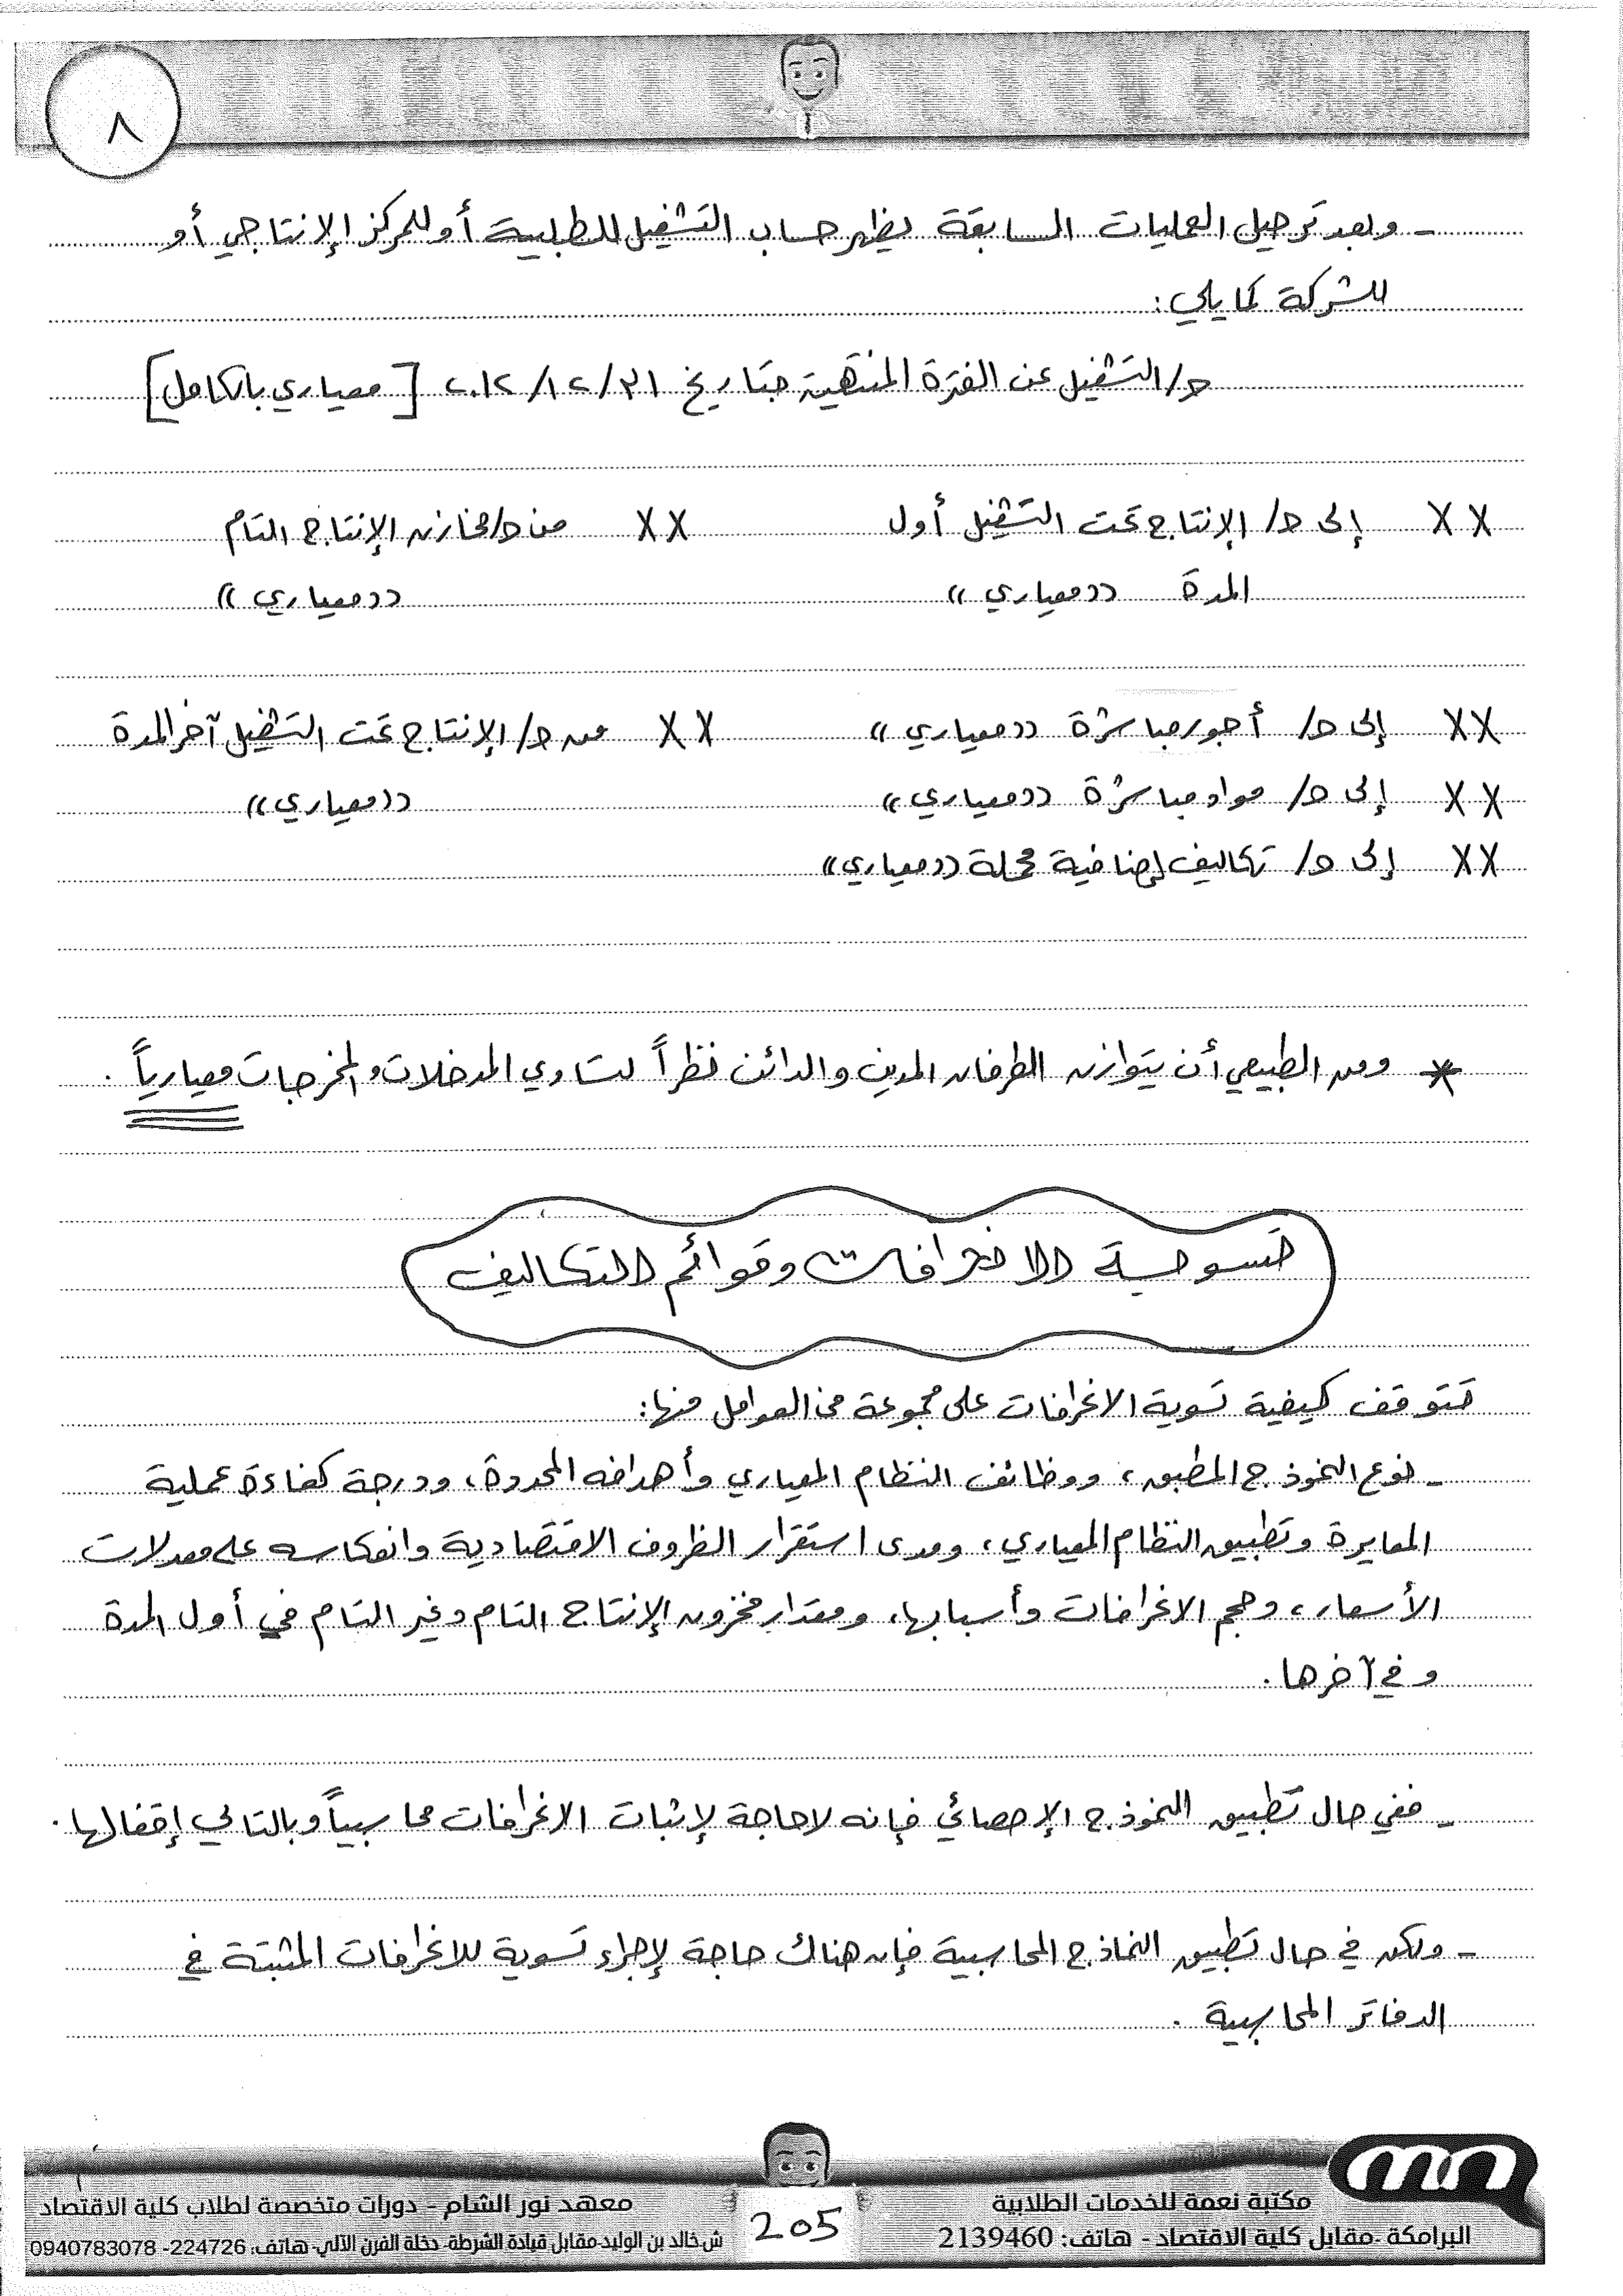 ٨
- وبعد ترحيل العمليات السابقة يظهر حساب التشغيل للطلبية أو للمركز الإنتاجي أو
للشركة كما يلي:
ح/ التشغيل عن الفترة المنتهية بتاريخ ٣١/١٢/٢٠١٢ [معياري بالكامل]
×× إلى ح/ الإنتاج تحت التشغيل أول ×× من ح/ مخازن الإنتاج التام
المدة ((معياري)) ((معياري))
×× إلى ح/ أجور مباشرة ((معياري)) ×× من ح/ الإنتاج تحت التشغيل آخر المدة
×× إلى ح/ مواد مباشرة ((معياري)) ((معياري))
×× إلى ح/ تكاليف إضافية محملة ((معياري))
* ومن الطبيعي أن يتوازن الطرفان المدين والدائن نظراً لتساوي المدخلات والمخرجات معيارياً.
تسوية الانحرافات وقوائم التكاليف
تتوقف كيفية تسوية الانحرافات على مجموعة من العوامل منها:
- نوع النموذج المطبق، ووظائف النظام المعياري وأهدافه المحددة، ودرجة كفاءة عملية
المعايرة وتطبيق النظام المعياري، ومدى استقرار الظروف الاقتصادية وانعكاسه على معدلات
الأسعار، وحجم الانحرافات وأسبابها، ومقدار مخزون الإنتاج التام وغير التام في أول المدة
وفي آخرها.
- ففي حال تطبيق النموذج الإحصائي فإنه لا حاجة لإثبات الانحرافات محاسبياً وبالتالي إقفالها.
- ولكن في حال تطبيق النماذج المحاسبية فإن هناك حاجة لإجراء تسوية للانحرافات المثبتة في
الدفاتر المحاسبية.
مكتبة نعمة للخدمات الطلابية
البرامكة - مقابل كلية الاقتصاد - هاتف: 2139460
205
معهد نور الشام - دورات متخصصة لطلاب كلية الاقتصاد
ش.خالد بن الوليد-مقابل قيادة الشرطة- دخلة الفرن الآلي- هاتف: 224726- 0940783078